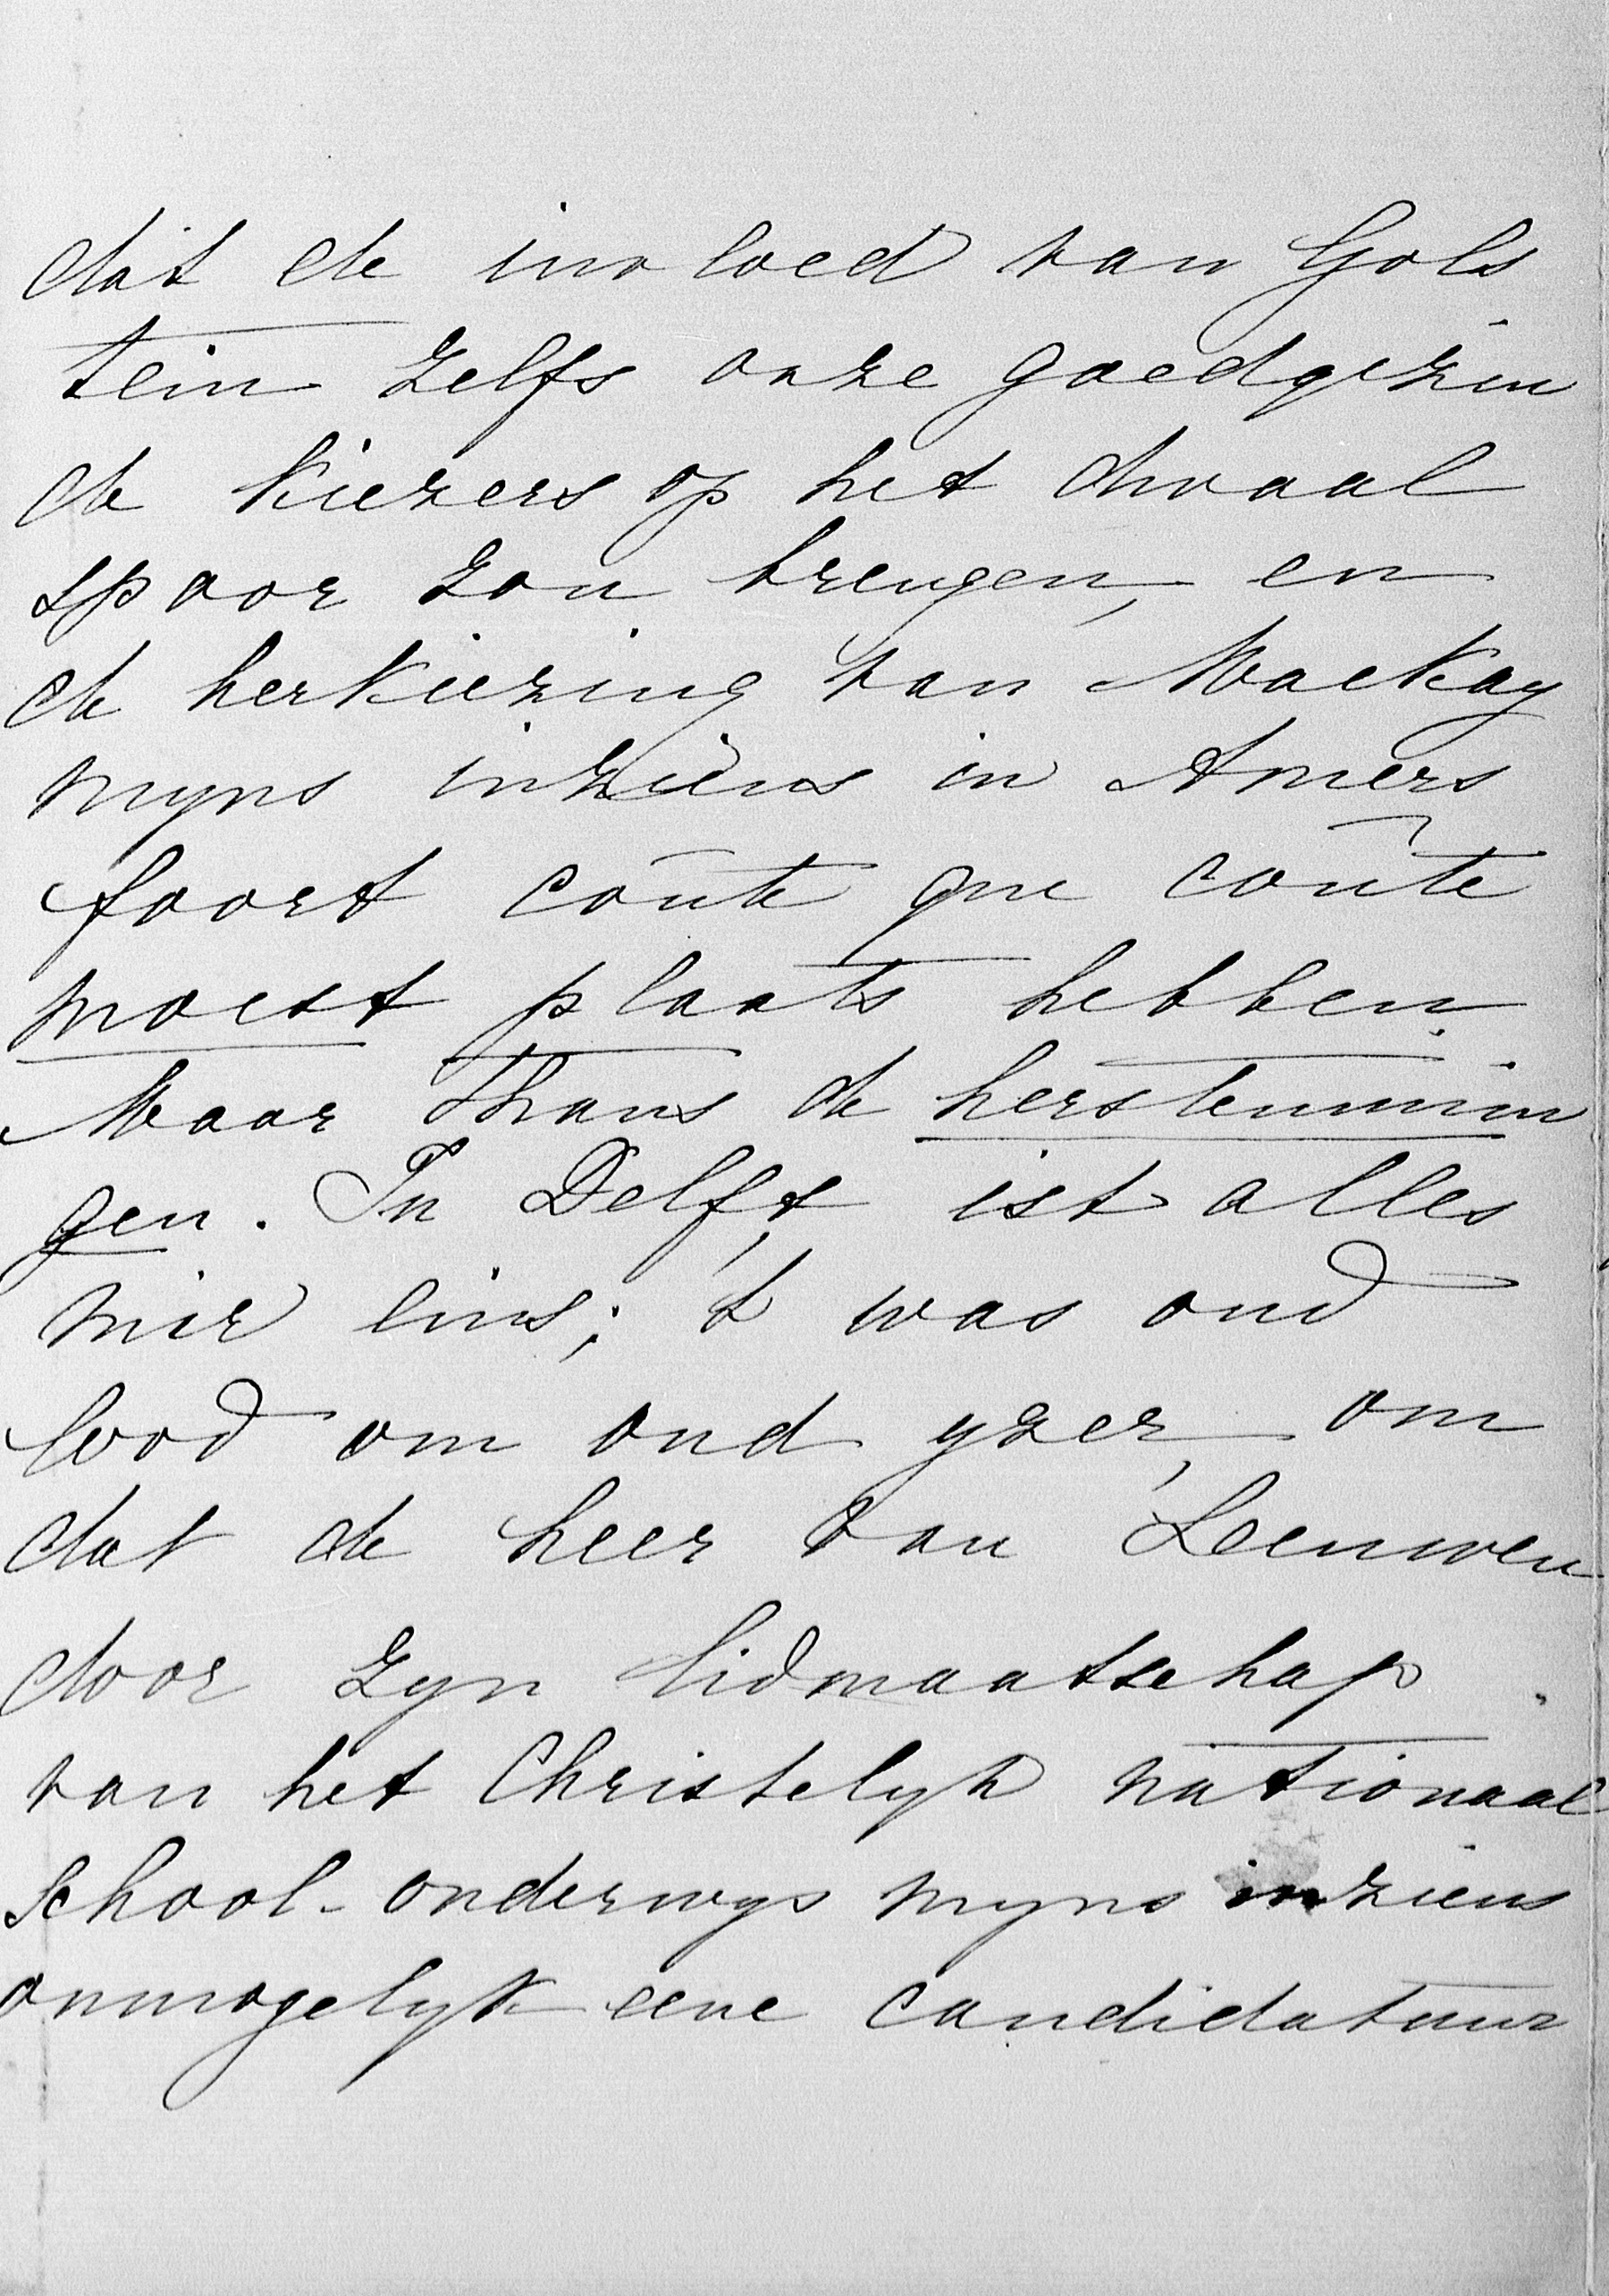 dat de invloed van Gols
tein zelfs onze goedgezin
de kiezers op het dwaal
spoor zou brengen, en
de herkiezing van Mackay
myns inziens in Amers
foort coûte que coûte
moest plaats hebben.
Maar thans de herstemmin
gen. In Delft, ist alles
mir eins; 't was oud
lood om oud yzer, om
dat de heer van Leeuwen
door zyn lidmaatschap
van het Christelyk nationaal
School-onderwys myns inziens
onmogelyk eene candidatuur